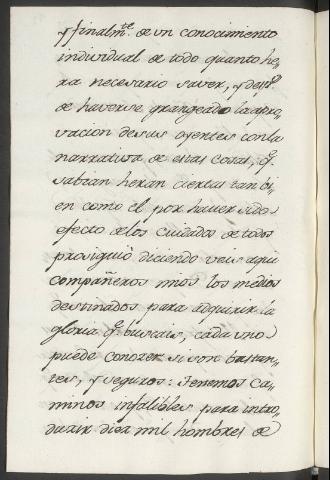 y finalm.te de vn conocimiento
individual de todo quanto he-
ra necesario saver, y desp.s
de haverse grangeado la apro-
vacion de sus oyentes con la
narrativa de estas cosas, q.e
sabian heran ciertas tambi-
en como el por haver sido
efecto de los cuidados de todos
prosiguiò diciendo veis aqui
compañeros mios los medios
destinados para adquirir la
gloria q.e buscais, cada vno
puede conozer si son bastan-
tes, y seguros: Tenemos ca-
minos infalibles para intro-
duzir diez mil hombres de